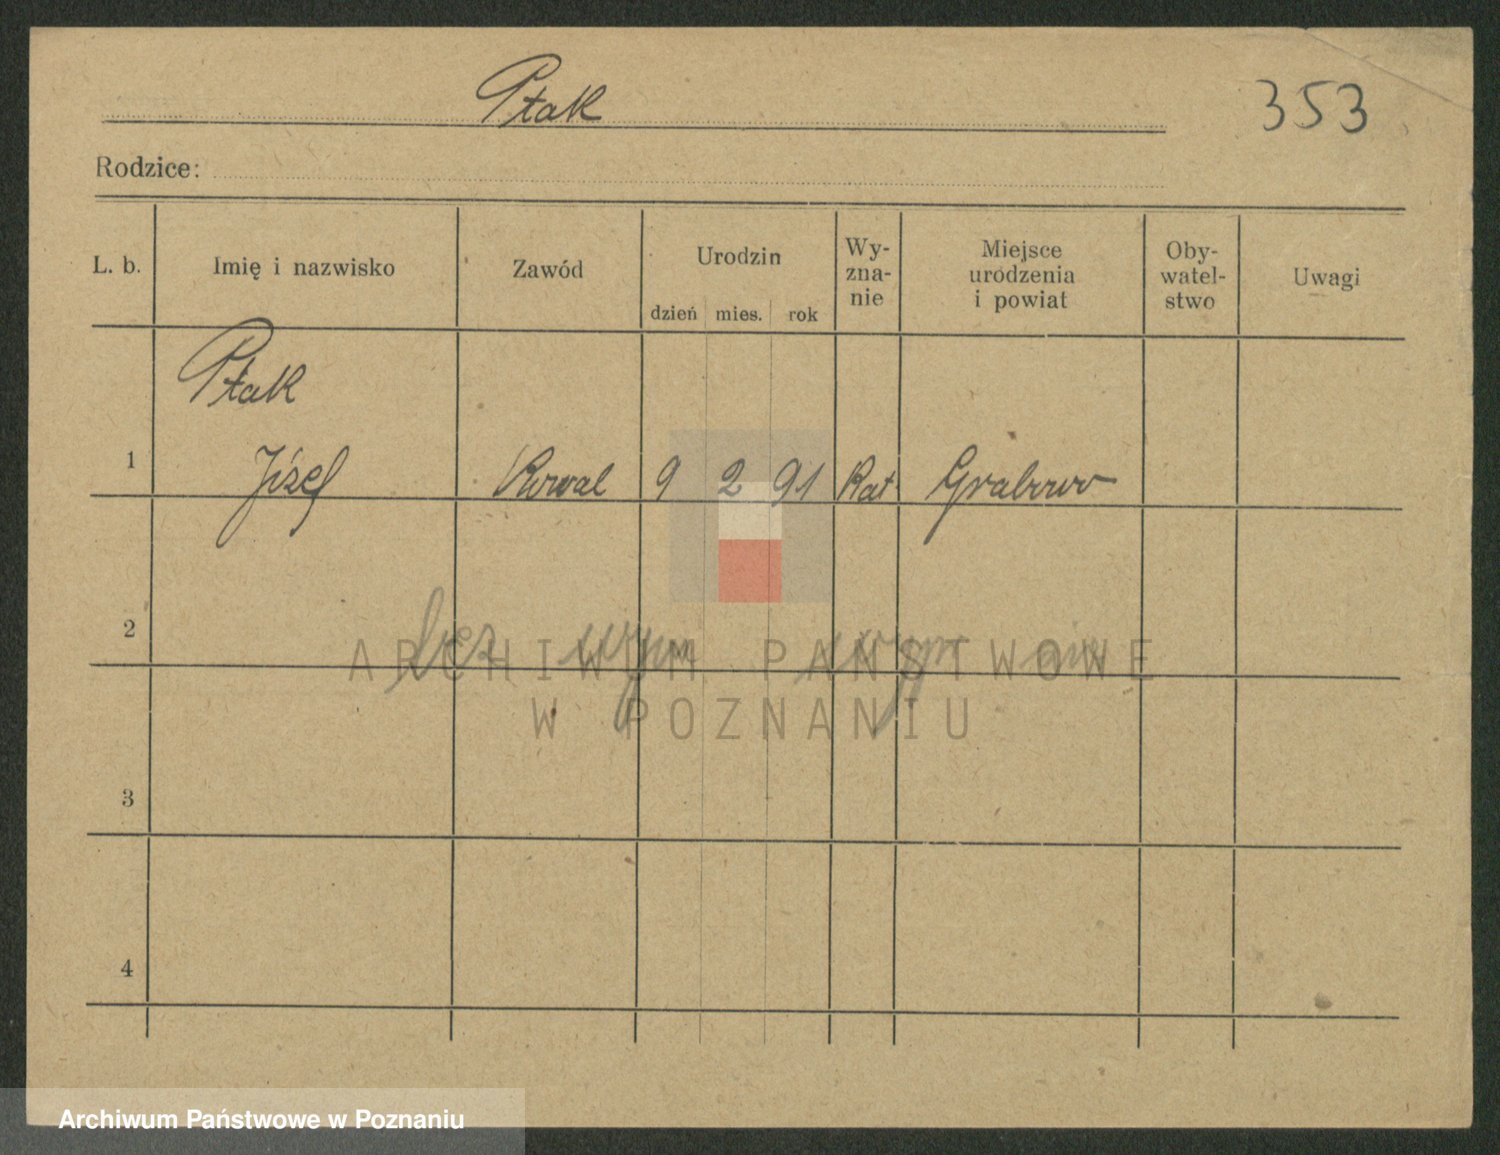 Ptak
353
Rodzice:
L. b. Imię i nazwisko Zawód Urodzin dzień mies. rok Wy-zna-nie Miejsce urodzenia i powiat Oby-watel-stwo Uwagi
Ptak
1 Józef Kowal 9 2 91 Kat Grabowo
2
bez
ARCHIWUM PAŃSTWOWE
W POZNANIU
3
4
Archiwum Państwowe w Poznaniu